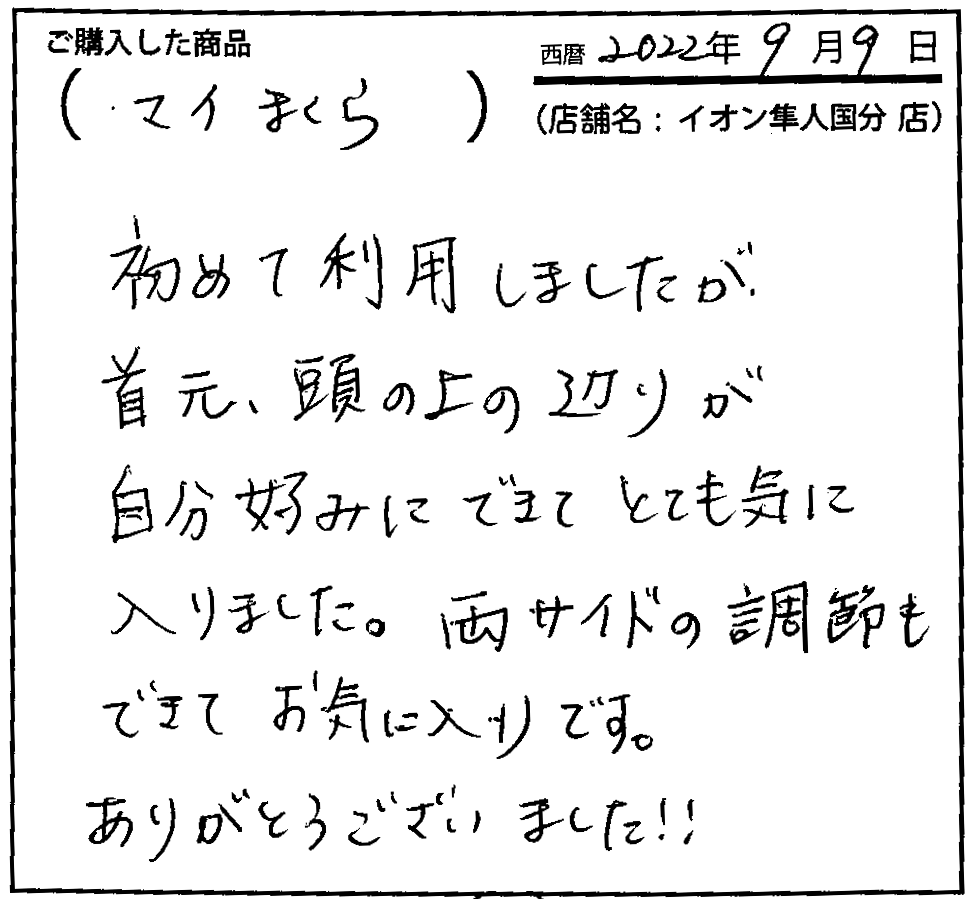 ご購入した商品
西暦 2022年 9月9日
(マイまくら)
(店舗名：イオン隼人国分 店)
初めて利用しましたが、
首元、頭の上の辺りが
自分好みにできてとても気に
入りました。両サイドの調節も
できてお気に入りです。
ありがとうございました!!